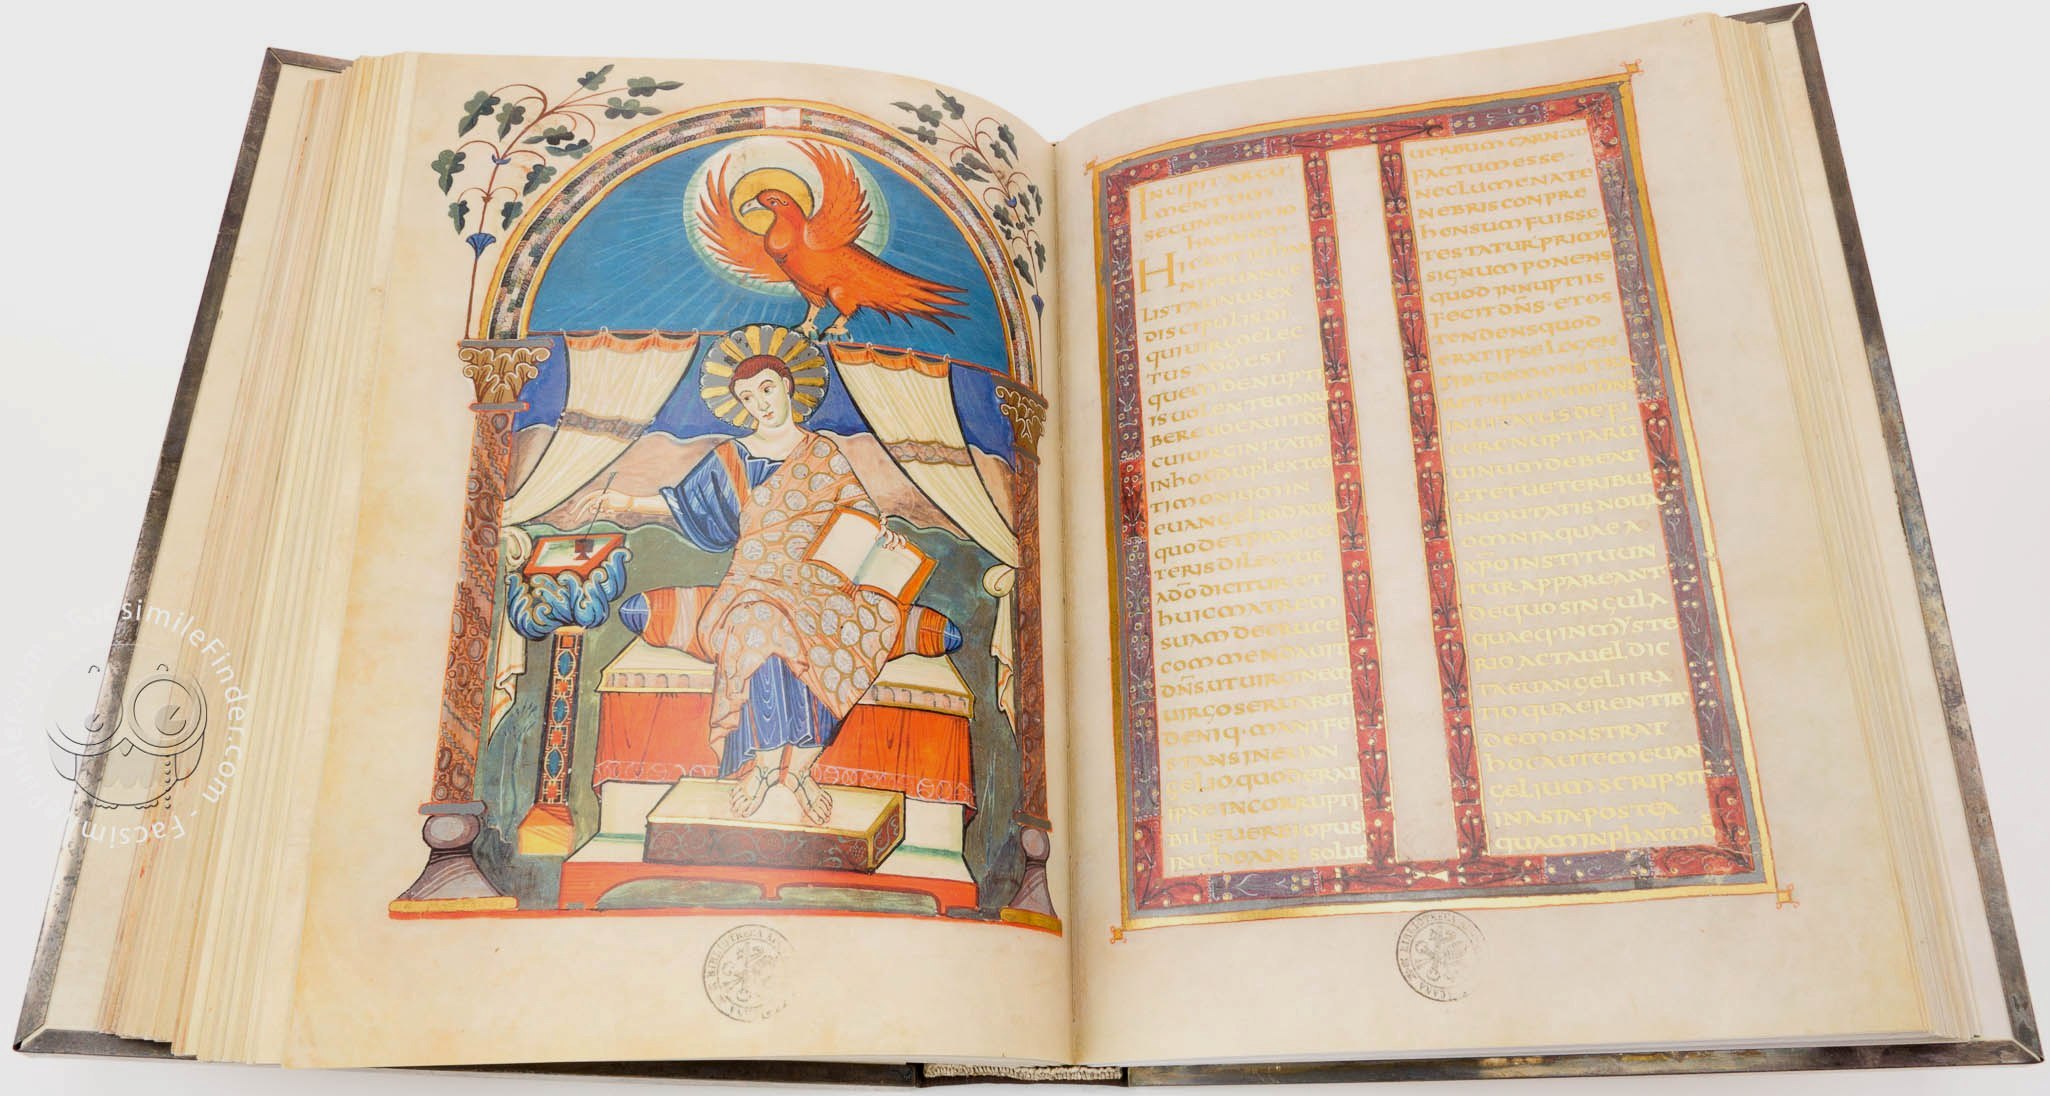 INCIPIT ARGU
MENTUM
SECUNDUM IO
HANNEM
HIC EST IOHAN
NES EUANGE
LISTA UNUS EX
DISCIPULIS DI
QUI UIRGO ELEC
TUS A DO EST
QUEM DE NUPTI
IS UOLENTEM NU
BERE UOCAUIT DS
CUI UIRGINITATIS
IN HOC DUPLEX TES
TIMONIUM IN
EUANGELIO DATUR
QUOD ET PRAE CE
TERIS DILECTUS
A DO DICITUR ET
HUIC MATREM
SUAM DE CRUCE
COMMENDAUIT
DNS UT UIRGINEM
UIRGO SERUARET
DENIQ· MANIFE
STANS IN EUAN
GELIO QUOD ERAT
IPSE INCORRUPTI
BILIS UERBI OPUS
INCHOANS SOLUS
UERBUM CARNEM
FACTUM ESSE·
NEC LUMEN A TE
NEBRIS CONPRE
HENSUM FUISSE
TESTATUR PRIMUM
SIGNUM PONENS
QUOD IN NUPTIIS
FECIT DNS· ET OS
TENDENS QUOD
ERAT IPSE LEGEN
TIB· DEMONSTRET
INUITATUS DEFI
CERE NUPTIARU
UINUM DEBEAT
UT ET UETERIBUS
INMUTATIS NOUA
OMNIA QUAE A
XPO INSTITUUN
TUR APPAREANT
DE QUO SINGULA
QUAEQ· IN MYSTE
RIO ACTA UEL DIC
TA EUANGELII RA
TIO QUAERENTIB·
DEMONSTRAT
HOC AUTEM EUAN
GELIUM SCRIPSIT
IN ASIA POSTEA
QUAM IN PHATMOS
BIBLIOTHECA
BIBLIOTHECA
FacsimileFinder.com